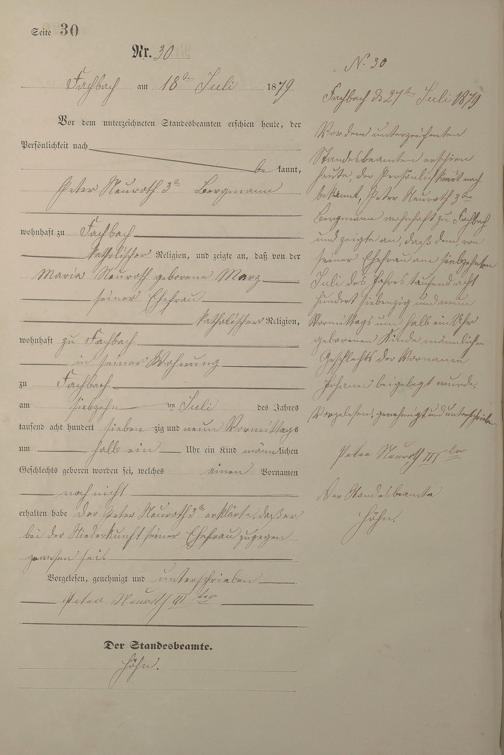 Seite 30
Nr. 30
Fachbach am 18ten Juli 1879
Vor dem unterzeichneten Standesbeamten erschien heute, der
Persönlichkeit nach
be kannt,
Peter Neuroth 3er Bergmann
wohnhaft zu Fachbach
katholischer Religion, und zeigte an, daß von der
Maria Neuroth geborene Marz
seiner Ehefrau
katholischer Religion,
wohnhaft zu Fachbach
in seiner Wohnung
zu Fachbach
am siebzehn ten Juli des Jahres
tausend acht hundert sieben zig und neun Vormittags
um halb ein Uhr ein Kind männlichen
Geschlechts geboren worden sei, welches einen Vornamen
noch nicht
erhalten habe der Peter Neuroth 3er erklärte, daß er
bei der Niederkunft seiner Ehefrau zugegen
gewesen sei
Vorgelesen, genehmigt und unterschrieben
Peter Neuroth III ter
Der Standesbeamte.
Höhn.
N. 30
Fachbach d. 27ten Juli 1879
Vor dem unterzeichneten
Standesbeamten erschien
heute, der Persönlichkeit nach
bekannt, Peter Neuroth 3er
Bergmann wohnhaft zu Fachbach
und zeigte an, daß dem von
seiner Ehefrau am siebzehnten
Juli des Jahres tausend acht
hundert siebenzig und neun
Vormittags um halb ein Uhr
geborenen Kinde männlichen
Geschlechts der Vornamen
Johann beigelegt wurde.
Vorgelesen, genehmigt und unterschrieben
Peter Neuroth III ter
Der Standesbeamte
Höhn.